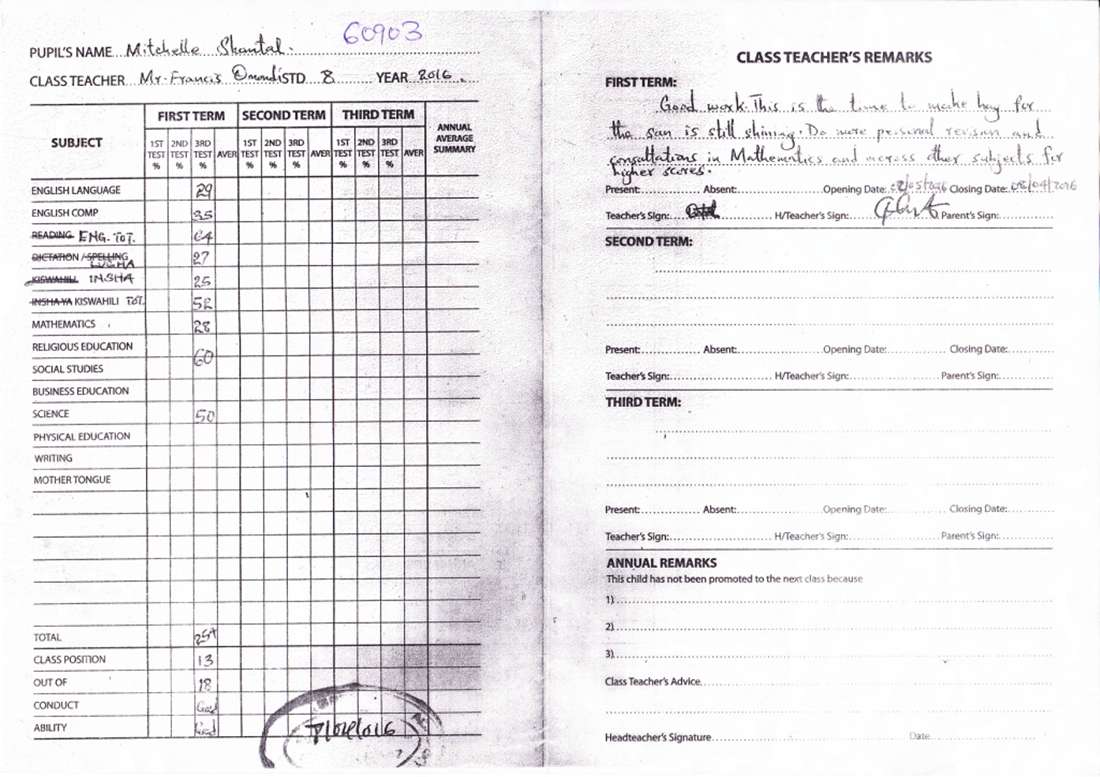 60903
PUPIL'S NAME Mitchelle Shantal.
CLASS TEACHER Mr. Francis Omondi STD 8 YEAR 2016.
SUBJECT FIRST TERM SECOND TERM THIRD TERM ANNUAL AVERAGE SUMMARY
1ST TEST % 2ND TEST % 3RD TEST % AVER 1ST TEST % 2ND TEST % 3RD TEST % AVER 1ST TEST % 2ND TEST % 3RD TEST % AVER
ENGLISH LANGUAGE 29
ENGLISH COMP 35
READING ENG. TOT. 64
DICTATION / SPELLING LUGHA 27
KISWAHILI INSHA 25
INSHA YA KISWAHILI TOT. 52
MATHEMATICS 28
RELIGIOUS EDUCATION
SOCIAL STUDIES 60
BUSINESS EDUCATION
SCIENCE 50
PHYSICAL EDUCATION
WRITING
MOTHER TONGUE
TOTAL
CLASS POSITION 13
OUT OF 18
CONDUCT Good
ABILITY Good
CLASS TEACHER'S REMARKS
FIRST TERM:
Good work. This is the time to make hay for
the sun is still shining. Do more personal revision and
consultations in Mathematics and across other subjects for
higher scores.
Present: Absent: Opening Date: Closing Date: 08/04/2016
Teacher's Sign: H/Teacher's Sign: Parent's Sign:
SECOND TERM:
Present: Absent: Opening Date: Closing Date:
Teacher's Sign: H/Teacher's Sign: Parent's Sign:
THIRD TERM:
Present: Absent: Opening Date: Closing Date:
Teacher's Sign: H/Teacher's Sign: Parent's Sign:
ANNUAL REMARKS
This child has not been promoted to the next class because
1)
2)
3)
Class Teacher's Advice
Headteacher's Signature Date